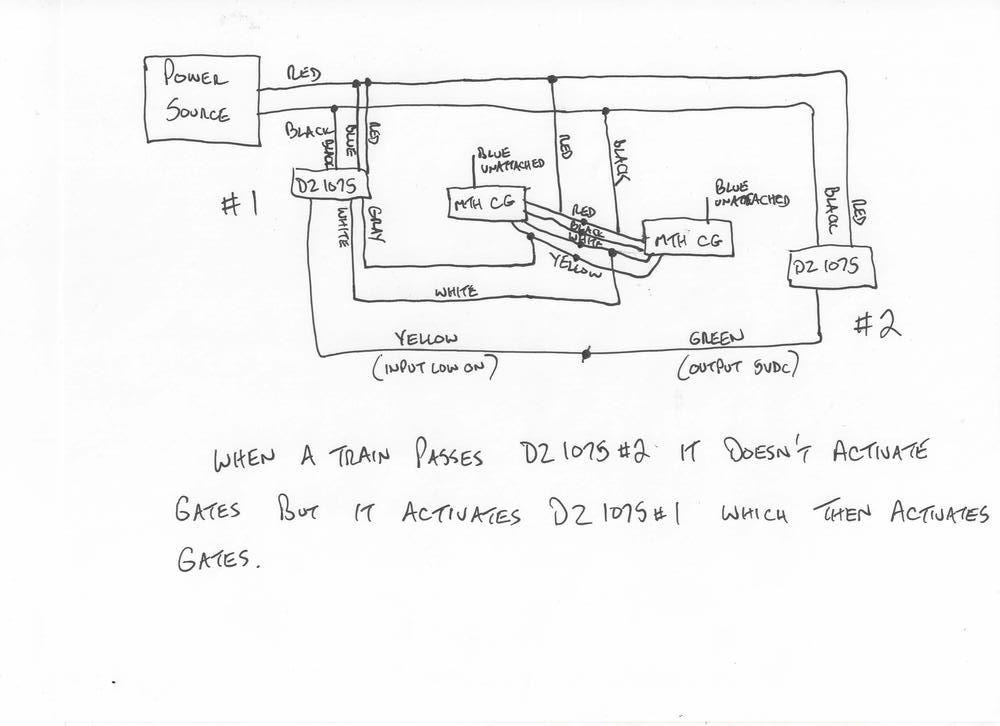 POWER
SOURCE
RED
BLACK
BLACK
BLUE
RED
DZ 1075
#1
WHITE
GRAY
BLUE
UNATTACHED
MTH CG
RED
BLACK
RED
BLACK
WHITE
YELLOW
BLUE
UNATTACHED
MTH CG
BLACK
RED
DZ 1075
#2
WHITE
YELLOW
(INPUT LOW ON)
GREEN
(OUTPUT 5VDC)
WHEN A TRAIN PASSES DZ 1075 #2 IT DOESN'T ACTIVATE
GATES BUT IT ACTIVATES DZ 1075 #1 WHICH THEN ACTIVATES
GATES.